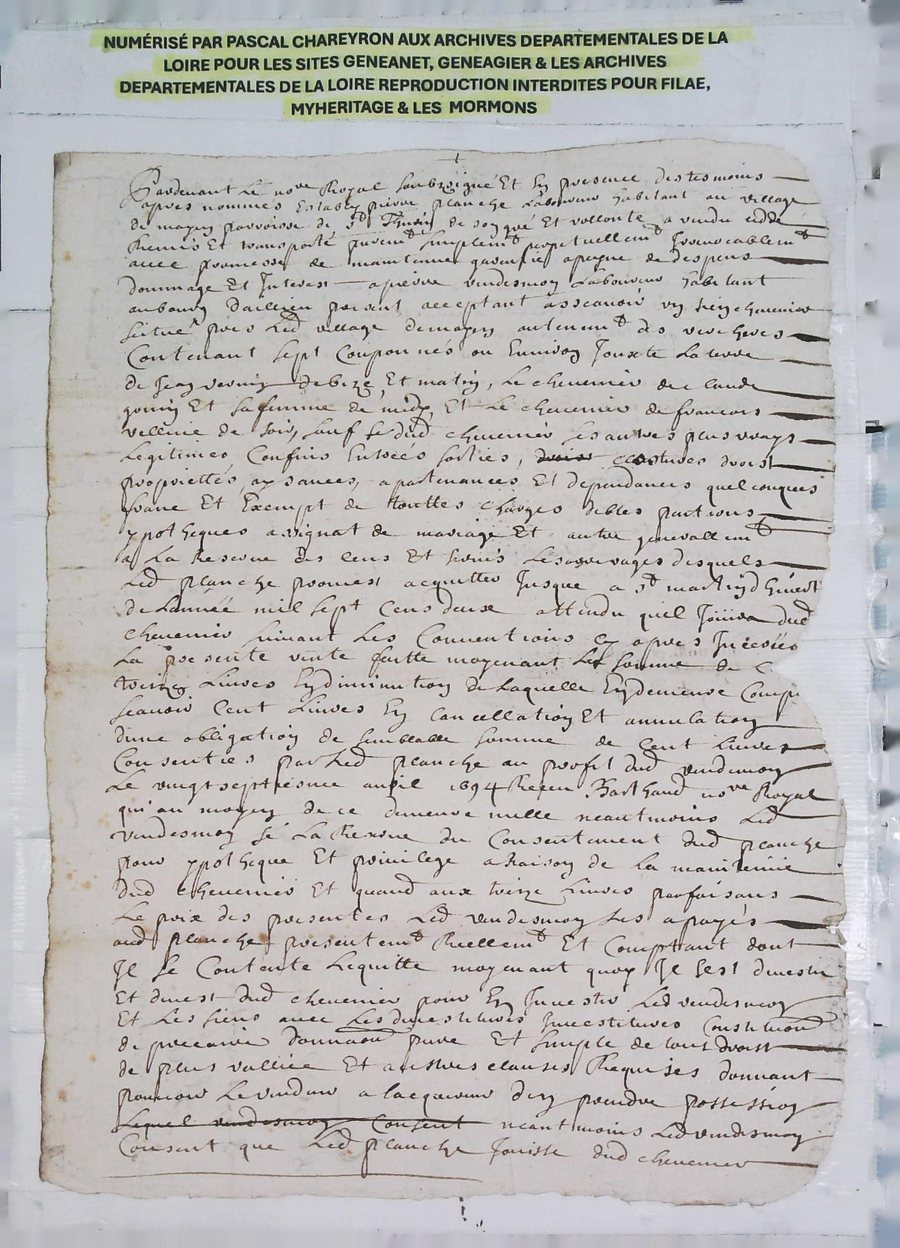 NUMÉRISÉ PAR PASCAL CHAREYRON AUX ARCHIVES DEPARTEMENTALES DE LA
LOIRE POUR LES SITES GENEANET, GENEAGIER & LES ARCHIVES
DEPARTEMENTALES DE LA LOIRE REPRODUCTION INTERDITES POUR FILAE,
MYHERITAGE & LES MORMONS
Pardevant Le no.re Royal soubsigné Et En presence des tesmoins
apres nommés Estably pierre planche Laboureur habitant au village
de mayen parroisse de s.t de son gré Et vollonté a vendu cedde
Remis Et transporté purem.t simplem.t perpetuellem.t Irrevocablem.t
avec promesse de maintenir garentir a peyne de despens
dommage Et Interest a pierre vendesmoy Laboureur habitant
au bourg dailleu present acceptant a scavoir un sien chenevier
scitué pres Led village demayen au tenem.t des vercheres
Contenant sept Couponnés ou Environ Jouxte La terre
de Jean vernin debize Et matin, Le chenevier de claude
gonin Et sa femme de midy Et Le chenevier de francois
de soir, sauf dud chenevier ses autres plus vrays
Legitimes Confins Entrées sorties, clostures droist
proprietés, aysances, apartenances Et dependances quelconques
franc Et Exempt de touttes charges debtes pantions
ypotheques assignat de mariage Et autre generallem.t
a La Reserve des cens Et servis Les arrerages desquels
Led planche promest acquitter Jusque a s.t martin dhivert
de Lannée mil sept Cens deux attendu quel Jouira dud
chenevier suivant Les Conventions cy apres Incerées
La presente vente faitte moyenant La somme de C
treize Livres En diminution de Laquelle En demeure Comp
scavoir Cent Livres En cancellation Et annulation
dune obligation de semblable somme de Cent Livres
Consenties par Led planche au profit dud vendesmoy
Le vingt septiesme avril 1694 Receu Barthaud no.re Royal
qui au moyen de ce demeure nulle neantmoins Led
vendesmoy se La Reserve du Consentement dud planche
pour ypotheque Et privilege a Raison de la maintenüe
dud chenevier Et quand aux treize Livres parfaisans
Le prix des presentes Led vendesmoy Les a payés
aud planche presentem.t Reellem.t Et Comptant dont
Il se Contente Lequitte moyenant quoy Il sest divestu
Et divest dud chenevier pour En Investir Led vendesmoy
Et Les siens avec Les divestitures Investitures Constitution
de precaire donnaon pure Et simple de tout droist
de plus vallüe Et autres clauses Requises donnant
pouvoir Le vendeur a lacquereur den prendre possession
Lequel vendesmoy Consent neantmoins Led vendesmoy
Consent que Led planche Jouisse dud chenevier